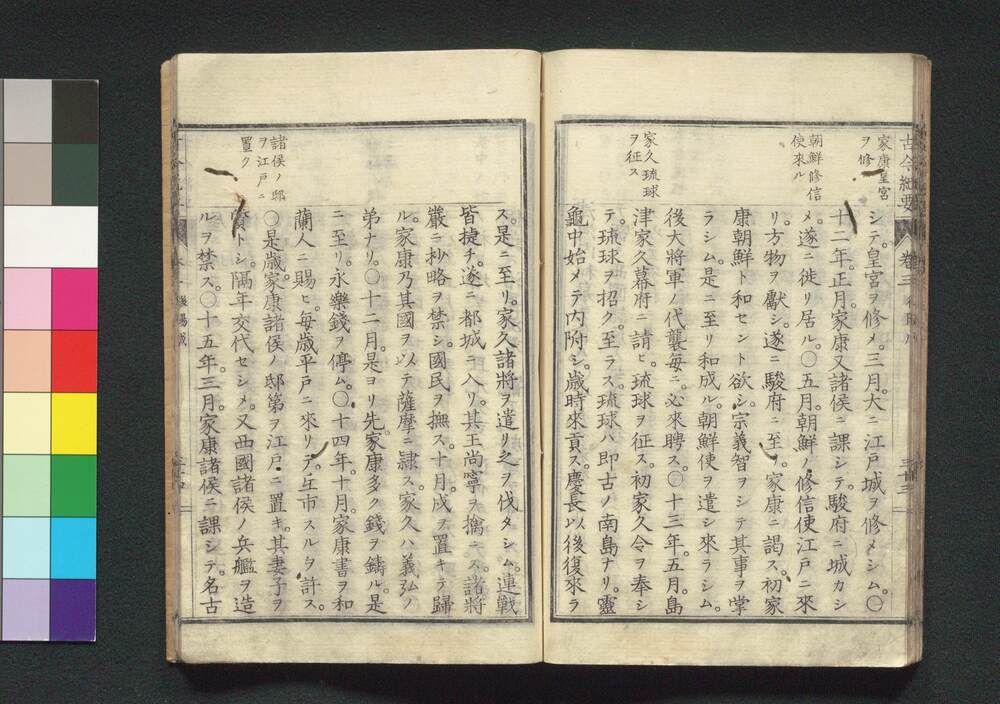 古今紀要
卷三
三十三
家康皇宮
ヲ修ム
朝鮮修信
使來ル
家久琉球
ヲ征ス
シテ。皇宮ヲ修メ。三月。大ニ江戸城ヲ修メシム。〇
十二年。正月。家康又諸侯ニ課シテ。駿府ニ城カシ
メ。遂ニ徙リ居ル。〇五月。朝鮮ノ修信使江戸ニ來
リ。方物ヲ獻シ。遂ニ駿府ニ至リ。家康ニ謁ス。初家
康朝鮮ト和セント欲シ。宗義智ヲシテ其事ヲ掌
ラシム。是ニ至リ和成ル。朝鮮使ヲ遣シ來ラシム。
後大將軍ノ代襲每ニ。必來聘ス。〇十三年。五月。島
津家久幕府ニ請ヒ。琉球ヲ征ス。初家久令ヲ奉シ
テ。琉球ヲ招ク。至ラス。琉球ハ即古ノ南島ナリ。靈
龜中始メテ内附シ。歲時來貢ス。慶長以後復來ラ
諸侯ノ邸
ヲ江戸ニ
置ク
ス。是ニ至リ。家久諸將ヲ遣リ之ヲ伐タシム。連戰
皆捷チ。遂ニ都城ニ入リ。其王尚寧ヲ擒ニス。諸將
嚴ニ抄略ヲ禁シ。國民ヲ撫ス。十月。戍ヲ置キテ歸
ル。家康乃其國ヲ以テ薩摩ニ隸ス。家久ハ義弘ノ
弟ナリ。〇十二月。是ヨリ先。家康多ク錢ヲ鑄ル。是
ニ至リ。永樂錢ヲ停ム。〇十四年。十月。家康書ヲ和
蘭人ニ賜ヒ。每歲平戸ニ來リテ。互市スルヲ許ス。
〇是歲。家康諸侯ノ邸第ヲ江戸ニ置キ。其妻子ヲ
質トシ。隔年交代セシメ。又西國諸侯ノ兵艦ヲ造
ルヲ禁ス。〇十五年。三月。家康諸侯ニ課シテ。名古
後陽成